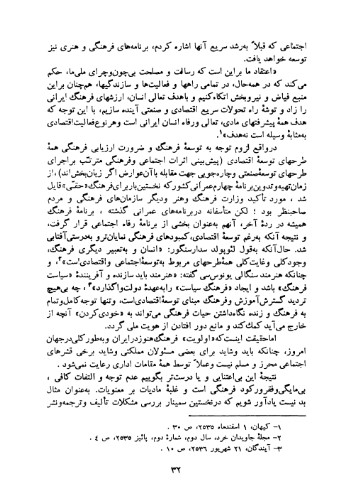 اجتماعی که قبلاً به‌رشد سریع آنها اشاره کردم، برنامه‌های فرهنگی و هنری نیز
توسعه خواهد یافت.
«اعتقاد ما براین است که رسالت و مصلحت بی‌چون‌وچرای ملی‌ما، حکم
می‌کند که در همه‌حال، در تمامی راهها و فعالیت‌ها و سازندگیها، همچنان براین
منبع فیاض و نیروبخش اتکاءکنیم و باهدف تعالی انسان، ارزشهای فرهنگ ایرانی
را زاد و توشهٔ راه تحولات سریع اقتصادی و صنعتی آینده سازیم، با این توجه که
هدف همهٔ پیشرفتهای مادی، تعالی ورفاه انسان ایرانی است وهر نوع‌فعالیت‌اقتصادی
به‌مثابهٔ وسیله است نه‌هدف»۱.
درواقع لزوم توجه به توسعهٔ فرهنگ و ضرورت ارزیابی فرهنگی همهٔ
طرحهای توسعهٔ اقتصادی (پیش‌بینی اثرات اجتماعی وفرهنگی مترتّب براجرای
طرحهای توسعهٔ‌صنعتی وچاره‌جویی جهت مقابله با آن‌عوارض اگر زیان‌بخش‌اند)، از
زمان‌تهیه‌وتدوین‌برنامهٔ چهارم‌عمرانی‌کشورکه نخستین‌باربرای‌فرهنگ«حقی»قایل
شد، مورد تأکید وزارت فرهنگ وهنر ودیگر سازمان‌های فرهنگی و مردم
صاحبنظر بود؛ لکن متأسفانه دربرنامه‌های عمرانی گذشته، برنامهٔ فرهنگ
همیشه در ردهٔ آخر، آنهم به‌عنوان بخشی از برنامهٔ رفاه اجتماعی قرار گرفت،
و نتیجه آنکه به‌رغم توسعهٔ اقتصادی،کمبودهای فرهنگی نمایان‌تر و به‌درستی‌آفتابی
شد. حال‌آنکه به‌قول لئوپولد سدارسنگور: «انسان و به‌تعبیر دیگری فرهنگ،
وجودکلی وغایت‌کلی همهٔ‌طرحهای مربوط به‌توسعهٔ‌اجتماعی واقتصادی‌است»۲، و
چنانکه هنرمند سنگالی یونوس‌سی گفته: «هنرمند باید سازنده و آفرینندهٔ «سیاست
فرهنگ» باشد و ایجاد «فرهنگ سیاست» رابه‌عهدهٔ دولت‌واگذارد»۳، چه بی‌هیچ
تردید گسترش‌آموزش وفرهنگ مبنای توسعهٔ‌اقتصادی‌است، وتنها توجه‌کامل‌وتمام
به فرهنگ و زنده نگاه‌داشتن حیات فرهنگی می‌تواند به «خودی‌کردن» آنچه از
خارج می‌آید کمک‌کند و مانع دور افتادن از هویت ملی گردد.
اماحقیقت اینست‌که«اولویت» فرهنگ‌هنوزدرایران وبه‌طورکلی‌درجهان
امروز، چنانکه باید وشاید برای بعضی مسئولان مملکتی وشاید برخی قشرهای
اجتماعی محرز و مسلم نیست وعملاً توسط همهٔ مقامات اداری رعایت نمی‌شود.
نتیجهٔ این بی‌اعتنایی و یا درست‌تر بگوییم عدم توجه و التفات کافی،
بی‌مایگی‌وفقرورکود فرهنگی است و غلبهٔ مادیات بر معنویات. به‌عنوان مثال
بد نیست یادآور شویم که درنخستین سمینار بررسی مشکلات تألیف وترجمه‌ونشر
۱- کیهان، ۱ اسفندماه ۲۵۳۵، ص ۳۰.
۲- مجلهٔ جاویدان خرد، سال دوم، شمارهٔ دوم، پائیز ۲۵۳۵، ص ۴.
۳- آیندگان، ۲۱ شهریور ۲۵۳۶، ص ۱۰.
۳۲